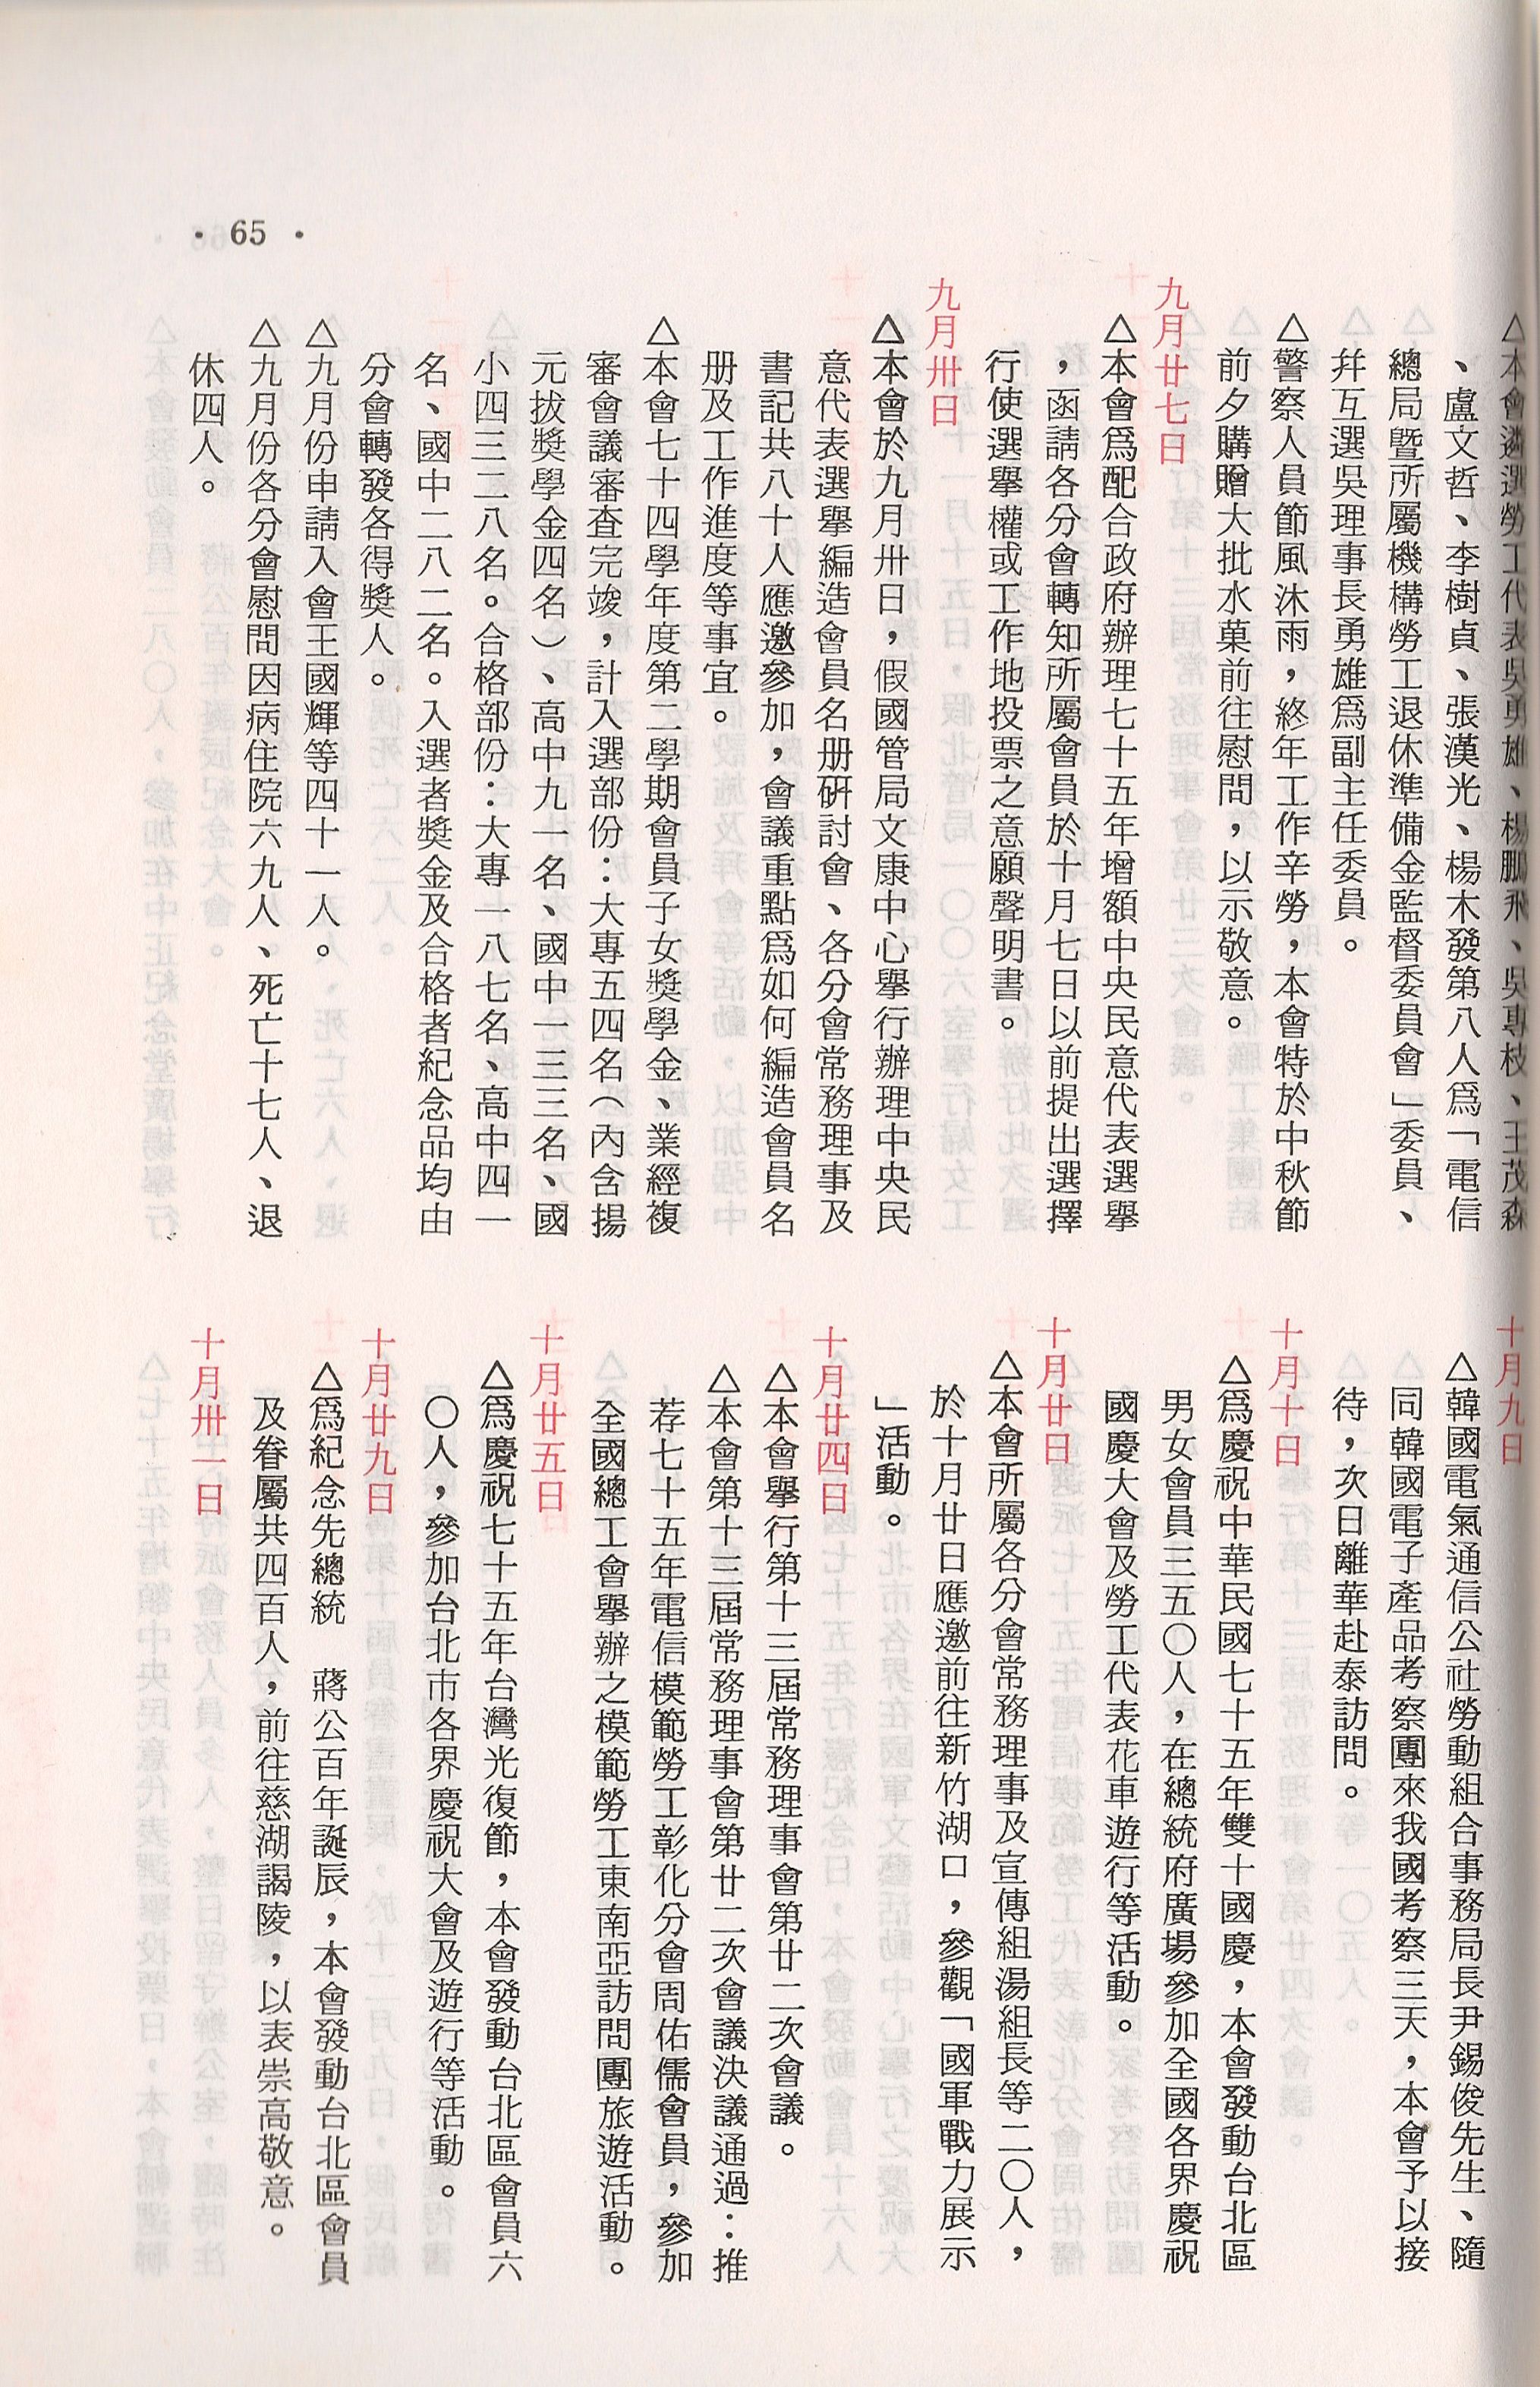 △本會遴選勞工代表吳勇雄、楊鵬飛、吳專枝、王茂森
、盧文哲、李樹貞、張漢光、楊木發第八人爲「電信
總局暨所屬機構勞工退休準備金監督委員會」委員、
幷互選吳理事長勇雄爲副主任委員。
△警察人員節風沐雨，終年工作辛勞，本會特於中秋節
前夕購贈大批水菓前往慰問，以示敬意。
九月廿七日
△本會爲配合政府辦理七十五年增額中央民意代表選舉
，函請各分會轉知所屬會員於十月七日以前提出選擇
行使選舉權或工作地投票之意願聲明書。
九月卅日
△本會於九月卅日，假國管局文康中心舉行辦理中央民
意代表選舉編造會員名册研討會、各分會常務理事及
書記共八十人應邀參加，會議重點爲如何編造會員名
册及工作進度等事宜。
△本會七十四學年度第二學期會員子女獎學金、業經複
審會議審查完竣，計入選部份：大專五四名（內含揚
元拔獎學金四名）、高中九一名、國中一三三名、國
小四三二八名。合格部份：大專一八七名、高中四一
名、國中二八二名。入選者獎金及合格者紀念品均由
分會轉發各得獎人。
△九月份申請入會王國輝等四十一人。
△九月份各分會慰問因病住院六九人、死亡十七人、退
休四人。
十月九日
△韓國電氣通信公社勞動組合事務局長尹錫俊先生、隨
同韓國電子產品考察團來我國考察三天，本會予以接
待，次日離華赴泰訪問。
十月十日
△爲慶祝中華民國七十五年雙十國慶，本會發動台北區
男女會員三五〇人，在總統府廣場參加全國各界慶祝
國慶大會及勞工代表花車遊行等活動。
十月廿日
△本會所屬各分會常務理事及宣傳組湯組長等二〇人，
於十月廿日應邀前往新竹湖口，參觀「國軍戰力展示
」活動。
十月廿四日
△本會舉行第十三屆常務理事會第廿二次會議。
△本會第十三屆常務理事會第廿二次會議決議通過：推
荐七十五年電信模範勞工彰化分會周佑儒會員，參加
全國總工會舉辦之模範勞工東南亞訪問團旅遊活動。
十月廿五日
△爲慶祝七十五年台灣光復節，本會發動台北區會員六
〇人，參加台北市各界慶祝大會及遊行等活動。
十月廿九日
△爲紀念先總統　蔣公百年誕辰，本會發動台北區會員
及眷屬共四百人，前往慈湖謁陵，以表崇高敬意。
十月卅一日
• 65 •